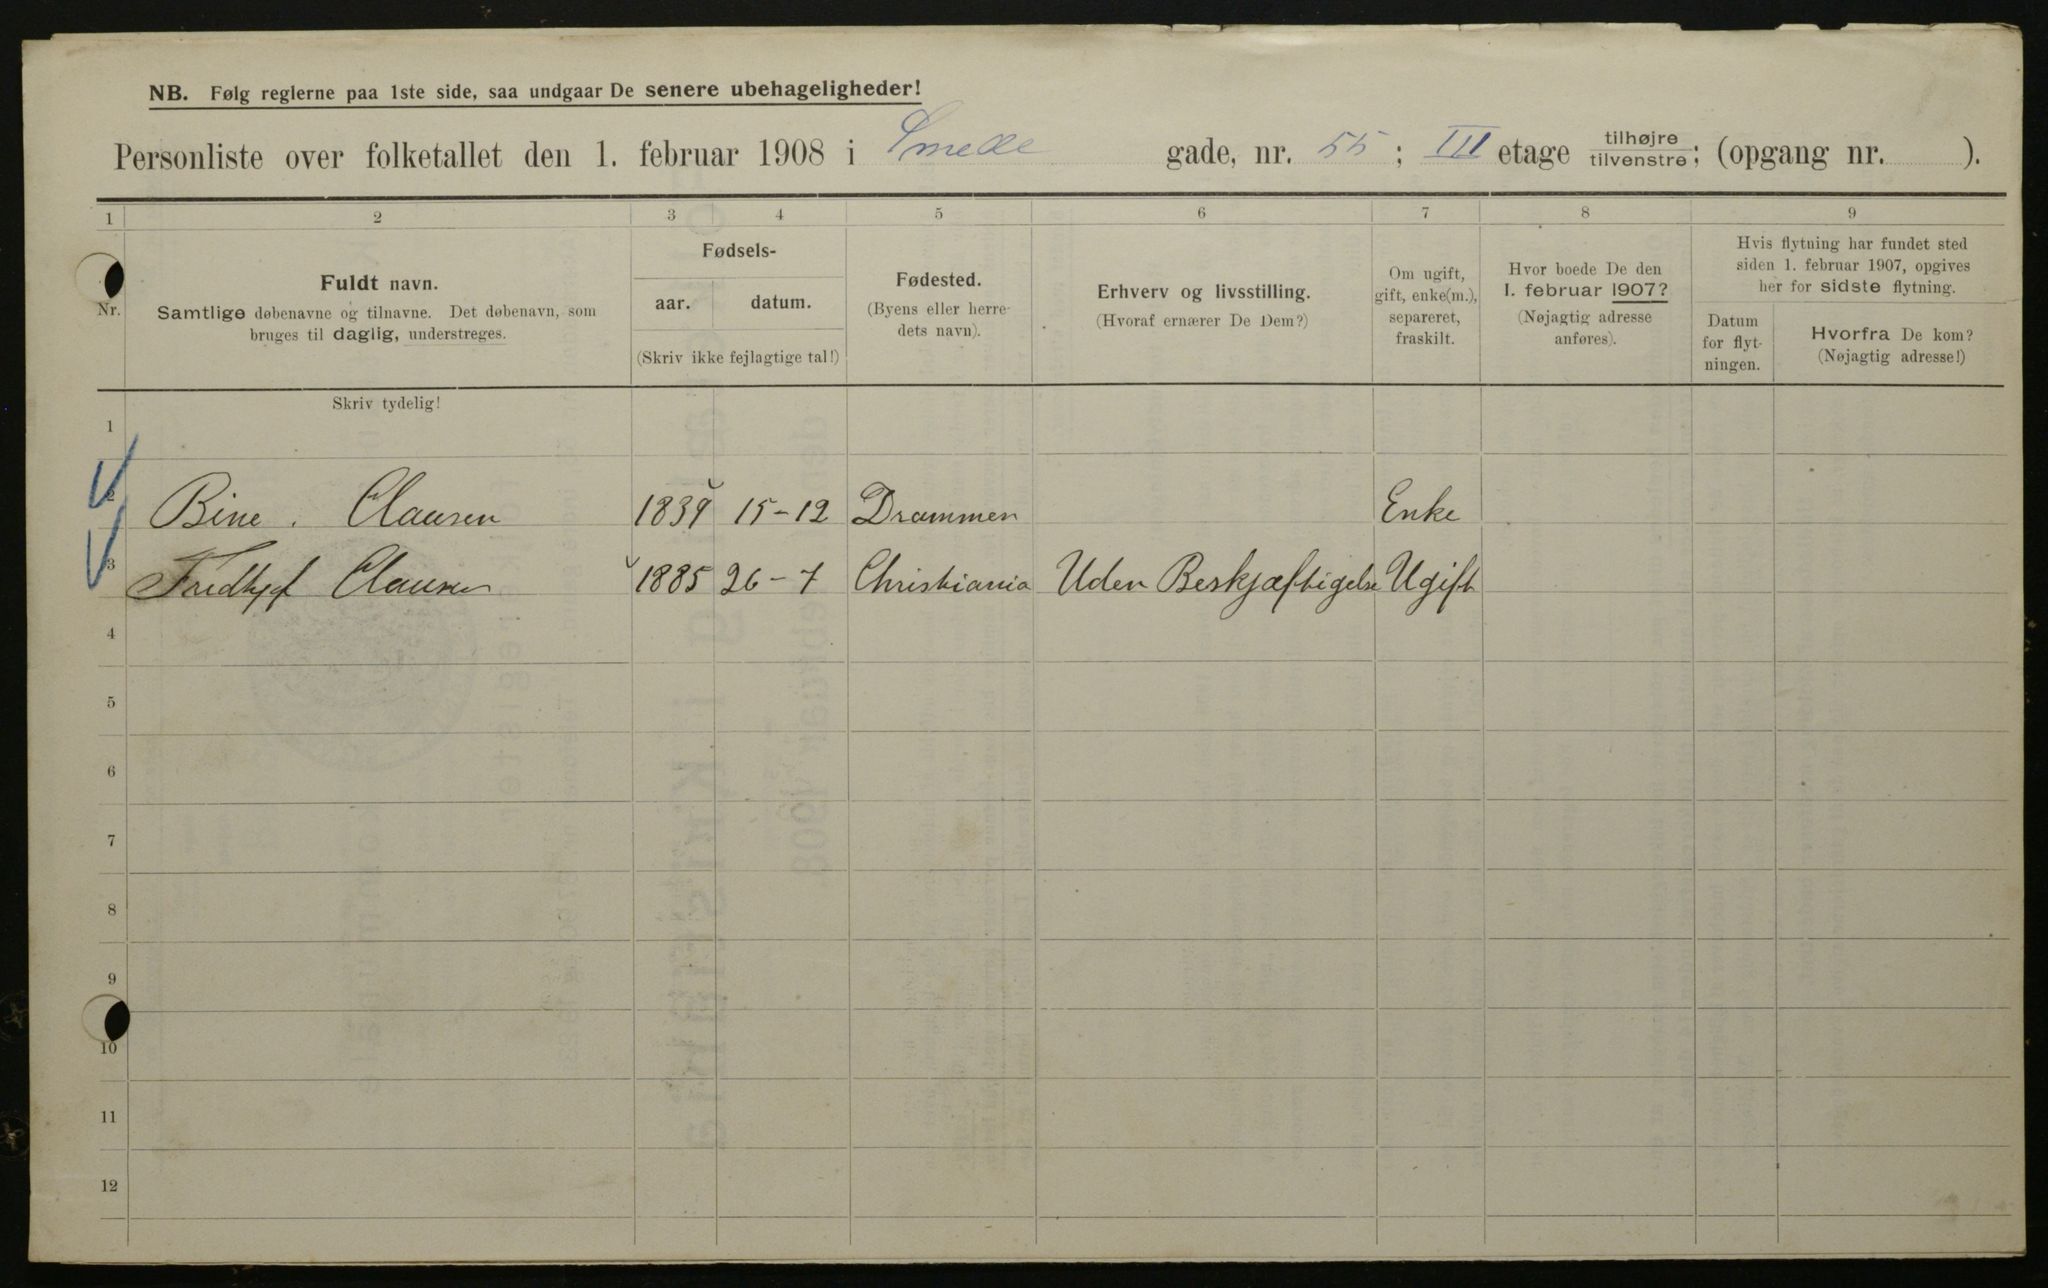 NB. Følg reglerne paa 1ste side, saa undgaar De senere ubehageligheder!
Personliste over folketallet den 1. februar 1908 i Smede gade, nr. 55; III etage tilhøjre tilvenstre; (opgang nr. ).
1 2 3 4 5 6 7 8 9
Nr.
Fuldt navn.
Samtlige døbenavne og tilnavne. Det døbenavn, som
bruges til daglig, understreges.
Fødsels-
aar. datum.
(Skriv ikke fejlagtige tal!)
Fødested.
(Byens eller herre-
dets navn).
Erhverv og livsstilling.
(Hvoraf ernærer De Dem?)
Om ugift,
gift, enke(m.),
separeret,
fraskilt.
Hvor boede De den
1. februar 1907?
(Nøjagtig adresse
anføres).
Hvis flytning har fundet sted
siden 1. februar 1907, opgives
her for sidste flytning.
Datum
for flyt-
ningen.
Hvorfra De kom?
(Nøjagtig adresse!)
Skriv tydelig!
1
2 Bine. Clausen 1839 15-12 Drammen Enke
3 Clausen 1885 26-7 Christiania Uden Beskjæftigelse Ugift
4
5
6
7
8
9
10
11
12